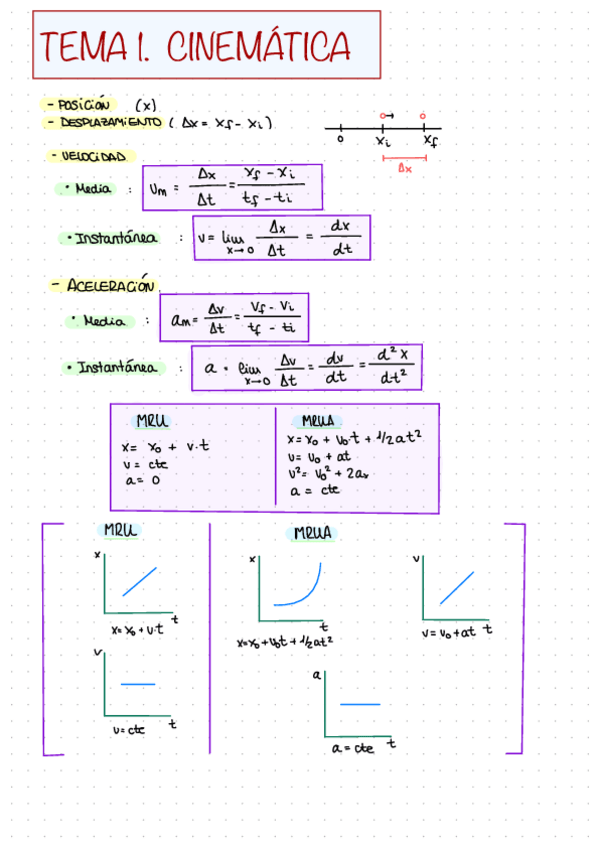 TEMA 1. CINEMÁTICA
- POSICIÓN (x)
- DESPLAZAMIENTO ( Δx = xf - xi )
0 xi xf
Δx
- VELOCIDAD
• Media : vm = Δx/Δt = (xf - xi)/(tf - ti)
• Instantánea : v = lim x→0 Δx/Δt = dx/dt
- ACELERACIÓN
• Media : am = Δv/Δt = (vf - vi)/(tf - ti)
• Instantánea : a = lim x→0 Δv/Δt = dv/dt = d²x/dt²
MRU
x = x0 + v·t
v = cte
a = 0
MRUA
x = x0 + v0·t + 1/2 at²
v = v0 + at
v² = v0² + 2ax
a = cte
MRU
x
t
x = x0 + v·t
v
t
v = cte
MRUA
x
t
x = x0 + v0t + 1/2 at²
v
t
v = v0 + at
a
t
a = cte